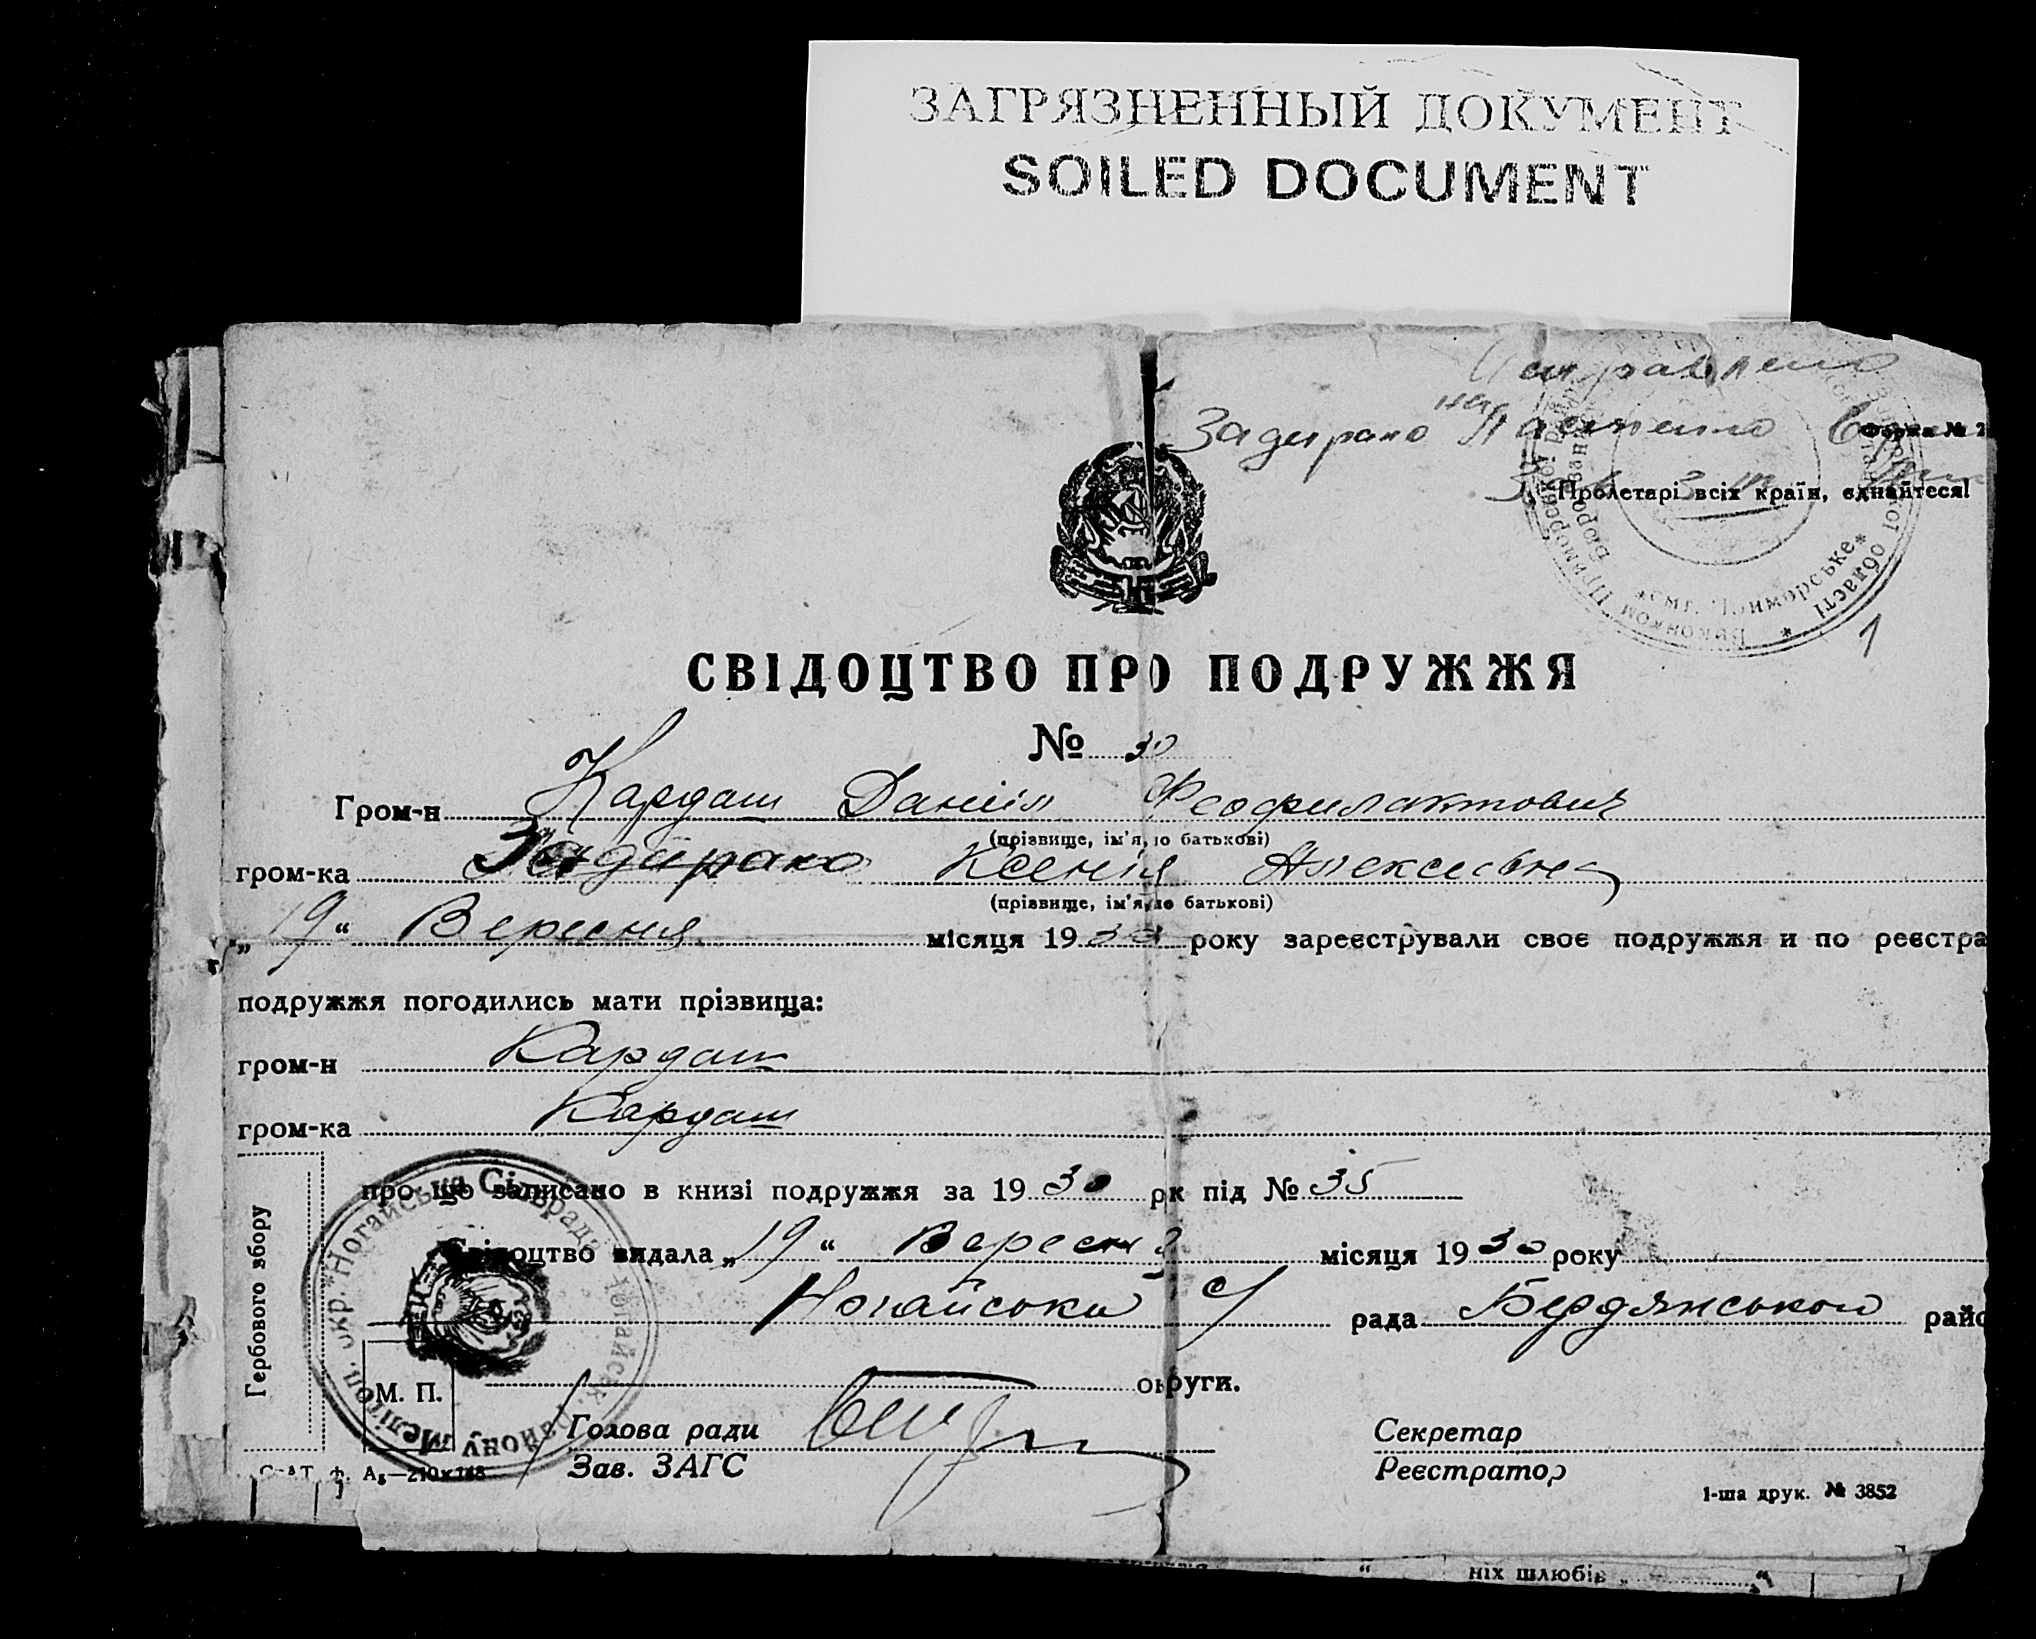 ЗАГРЯЗНЕННЫЙ ДОКУМЕНТ
SOILED DOCUMENT
Исправлено
Задирако на
Форма № 2
Пролетарі всіх країн, єднайтеся!
1
СВІДОЦТВО ПРО ПОДРУЖЖЯ
№ 30
Гром-н Кардаш Данііл Феофилактович
(прізвище, ім'я, по батькові)
гром-ка Задирако Ксенія Алексеевна
(прізвище, ім'я, по батькові)
„ 19 “ Вересня місяця 1930 року зареєстрували своє подружжя и по реєстра
подружжя погодились мати прізвища:
гром-н Кардаш
гром-ка Кардаш
про що записано в книзі подружжя за 1930 рк під № 35
Свідоцтво видала „ 19 “ Вересня місяця 1930 року
Ногайська с/ рада Бердянського райо
округи.
Гербового збору
М. П.
Голова ради
Зав. ЗАГС
Секретар
Реєстратор
1-ша друк. № 3852
Ногайська Сільрада Ногайськ. району Мелітоп. окр.
Виконком Приморської
області
смт. Приморське
ф. А₅—210×148
“ ніх шлюбів „ “